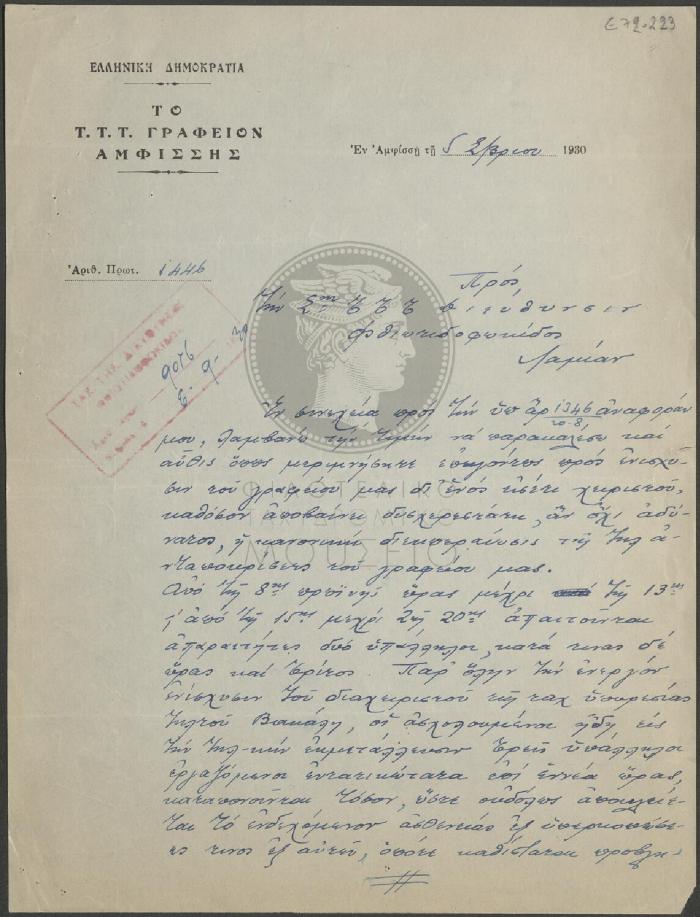 ε 72-223
ΕΛΛΗΝΙΚΗ ΔΗΜΟΚΡΑΤΙΑ
ΤΟ
Τ.Τ.Τ. ΓΡΑΦΕΙΟΝ
ΑΜΦΙΣΣΗΣ
Ἐν Ἀμφίσσῃ τῇ 5 7βρίου 1930
Ἀριθ. Πρωτ. 1446
Πρός,
Τὴν 5ην Τ Τ Τ Διεύθυνσιν
Φθιωτιδοφωκίδος
Λαμίαν
9076
6-9-30
Ἐν συνεχείᾳ πρὸς τὴν ὑπ' ἀρ 1346 ἀναφοράν
20-8
μου, λαμβάνω τὴν τιμὴν νὰ παρακαλέσω καὶ
αὖθις ὅπως μεριμνήσητε ἐπειγόντως πρὸς ἐνίσχυ-
σιν τοῦ γραφείου μας δι' ἑνὸς εἰσέτι χειριστοῦ,
καθόσον ἀποβαίνει δυσχερεστάτη, ἂν ὄχι ἀδύ-
νατος, ἡ κανονικὴ διεκπεραίωσις τῆς τηλ ἀν-
ταποκρίσεως τοῦ γραφείου μας.
Ἀπὸ τῆς 8ης πρωϊνῆς ὥρας μέχρι τῆς 13ης
καὶ ἀπὸ τῆς 15ης μέχρι τῆς 20ης ἀπαιτοῦνται
ἀπαραιτήτως δυὸ ὑπάλληλοι, κατὰ τινας δὲ
ὥρας καὶ τρίτος. Παρ' ὅλην τὴν ἐνεργὸν
ἐνίσχυσιν τοῦ διαχειριστοῦ τῆς ταχ ὑπηρεσίας
τηλτοῦ, οἱ ἀσχολούμενοι ἤδη εἰς
τὴν τηλ-κὴν ἐκμετάλλευσιν τρεῖς ὑπάλληλοι
ἐργαζόμενοι ἐντατικώτατα ἐπὶ ἐννέα ὥρας,
καταπονοῦνται τόσον, ὥστε οὐδόλως ἀποκλείε-
ται τὸ ἐνδεχόμενον ἀσθενείας ἐξ ὑπερκοπώσε-
ως τινος ἐξ αὐτῶν, ὁπότε καθίσταται προβλη-
ΦΙΛΟΤΕΛΙΚΟ
ΤΑΧΥΔΡΟΜΙΚΟ
ΜΟΥΣΕΙΟ